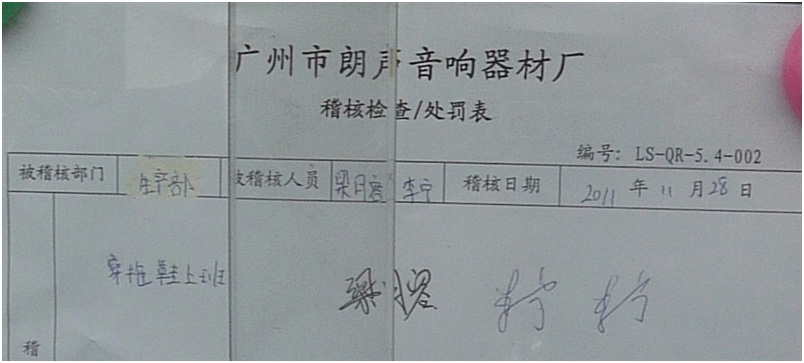 广州市朗声音响器材厂
稽核检查/处罚表
编号: LS-QR-5.4-002
被稽核部门 生产部 被稽核人员 梁月容 李宁 稽核日期 2011 年 11 月 28 日
穿拖鞋上班 梁月容 李宁 李宁
稽